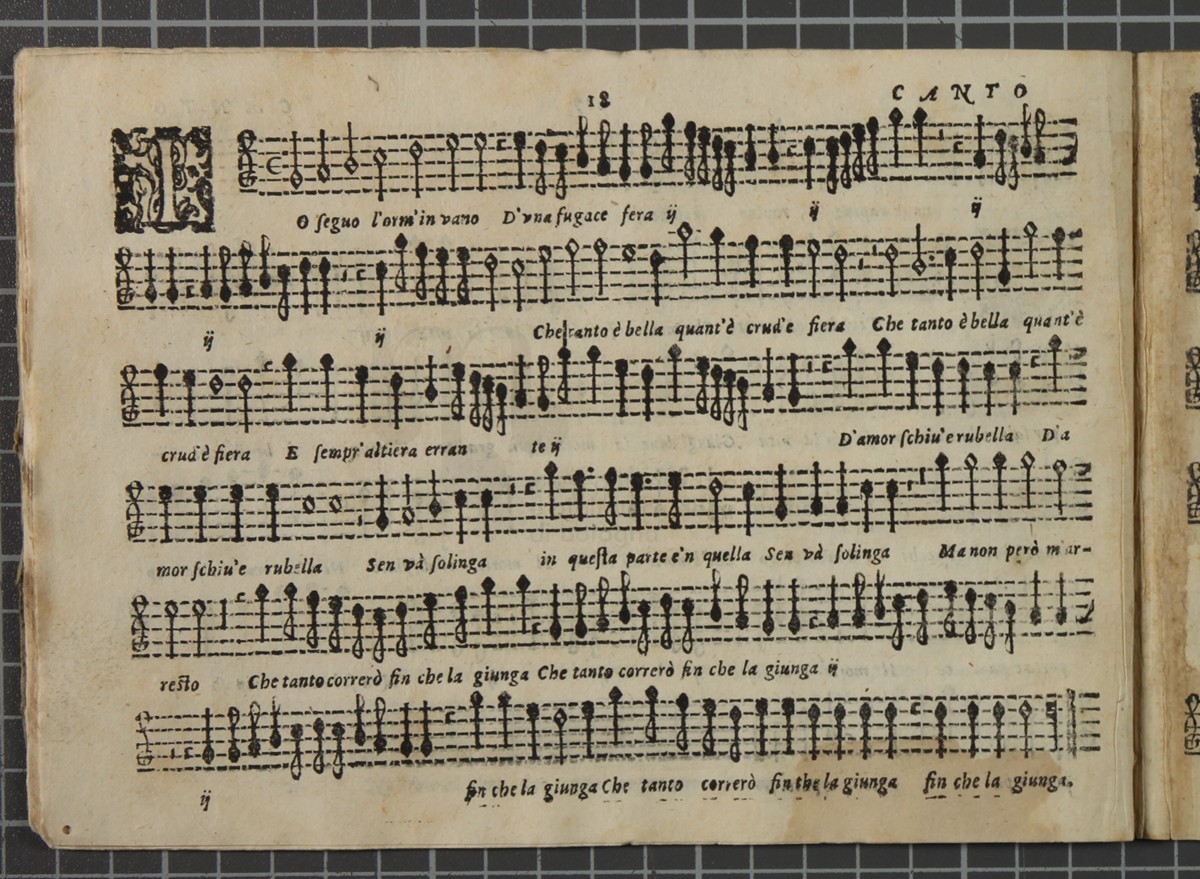 18 CANTO
IO ſeguo l'orm'in vano D'vna fugace fera ij ij ij
ij ij Che tanto è bella quant'è crud'e fiera Che tanto è bella quant'è
crud'è fiera E ſempr'altiera erran te ij D'amor ſchiu'e rubella D'a
mor ſchiu'e rubella Sen và ſolinga in queſta parte e'n quella Sen và ſolinga Ma non però m'ar-
reſto Che tanto correrò fin che la giunga Che tanto correrò fin che la giunga ij
ij fin che la giunga Che tanto correrò fin che la giunga fin che la giunga.